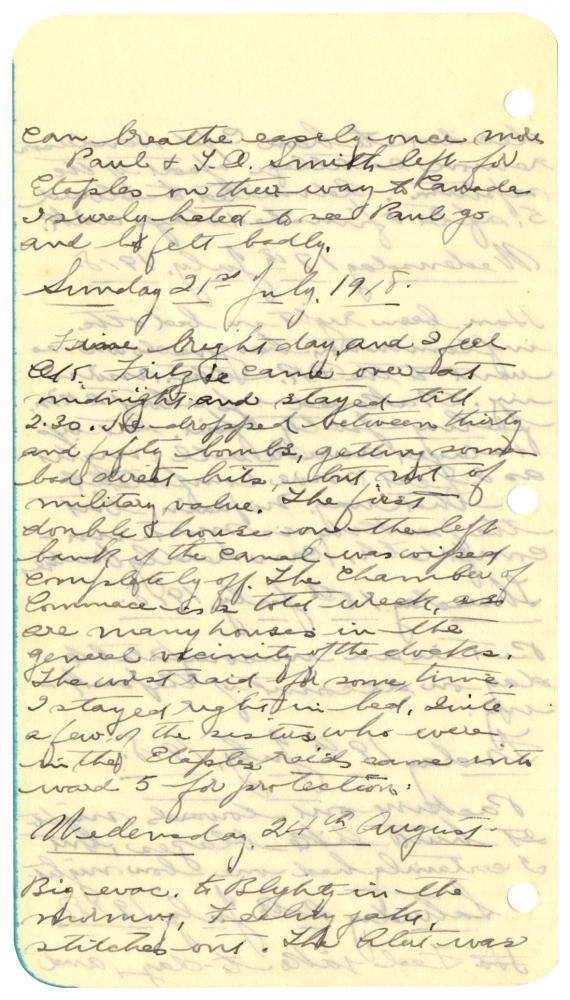 can breathe easely once more
Paul & J.A. Smith left for
Etaples on their way to Canada
I surely hated to see Paul go
and he felt badly.
Sunday 21st July. 1918.
Fine bright day, and I feel
Fritzie came over at
midnight and stayed till
2.30. He dropped between thirty
and fifty bombs, getting some
bad direct hits, but not of
military value. The first
double house on the left
bank of the canal was wiped
completely off. The Chamber of
Commerce is a total wreck, as
are many houses in the
general vicinity of the docks.
The worst raid for some time.
I stayed right in bed. Quite
a few of the sisters who were
in the Etaples raids came into
ward 5 for protection.
Wedensday. 24th August.
Big evac. to Blighty in the
morning, Feeling
stitches out. The was